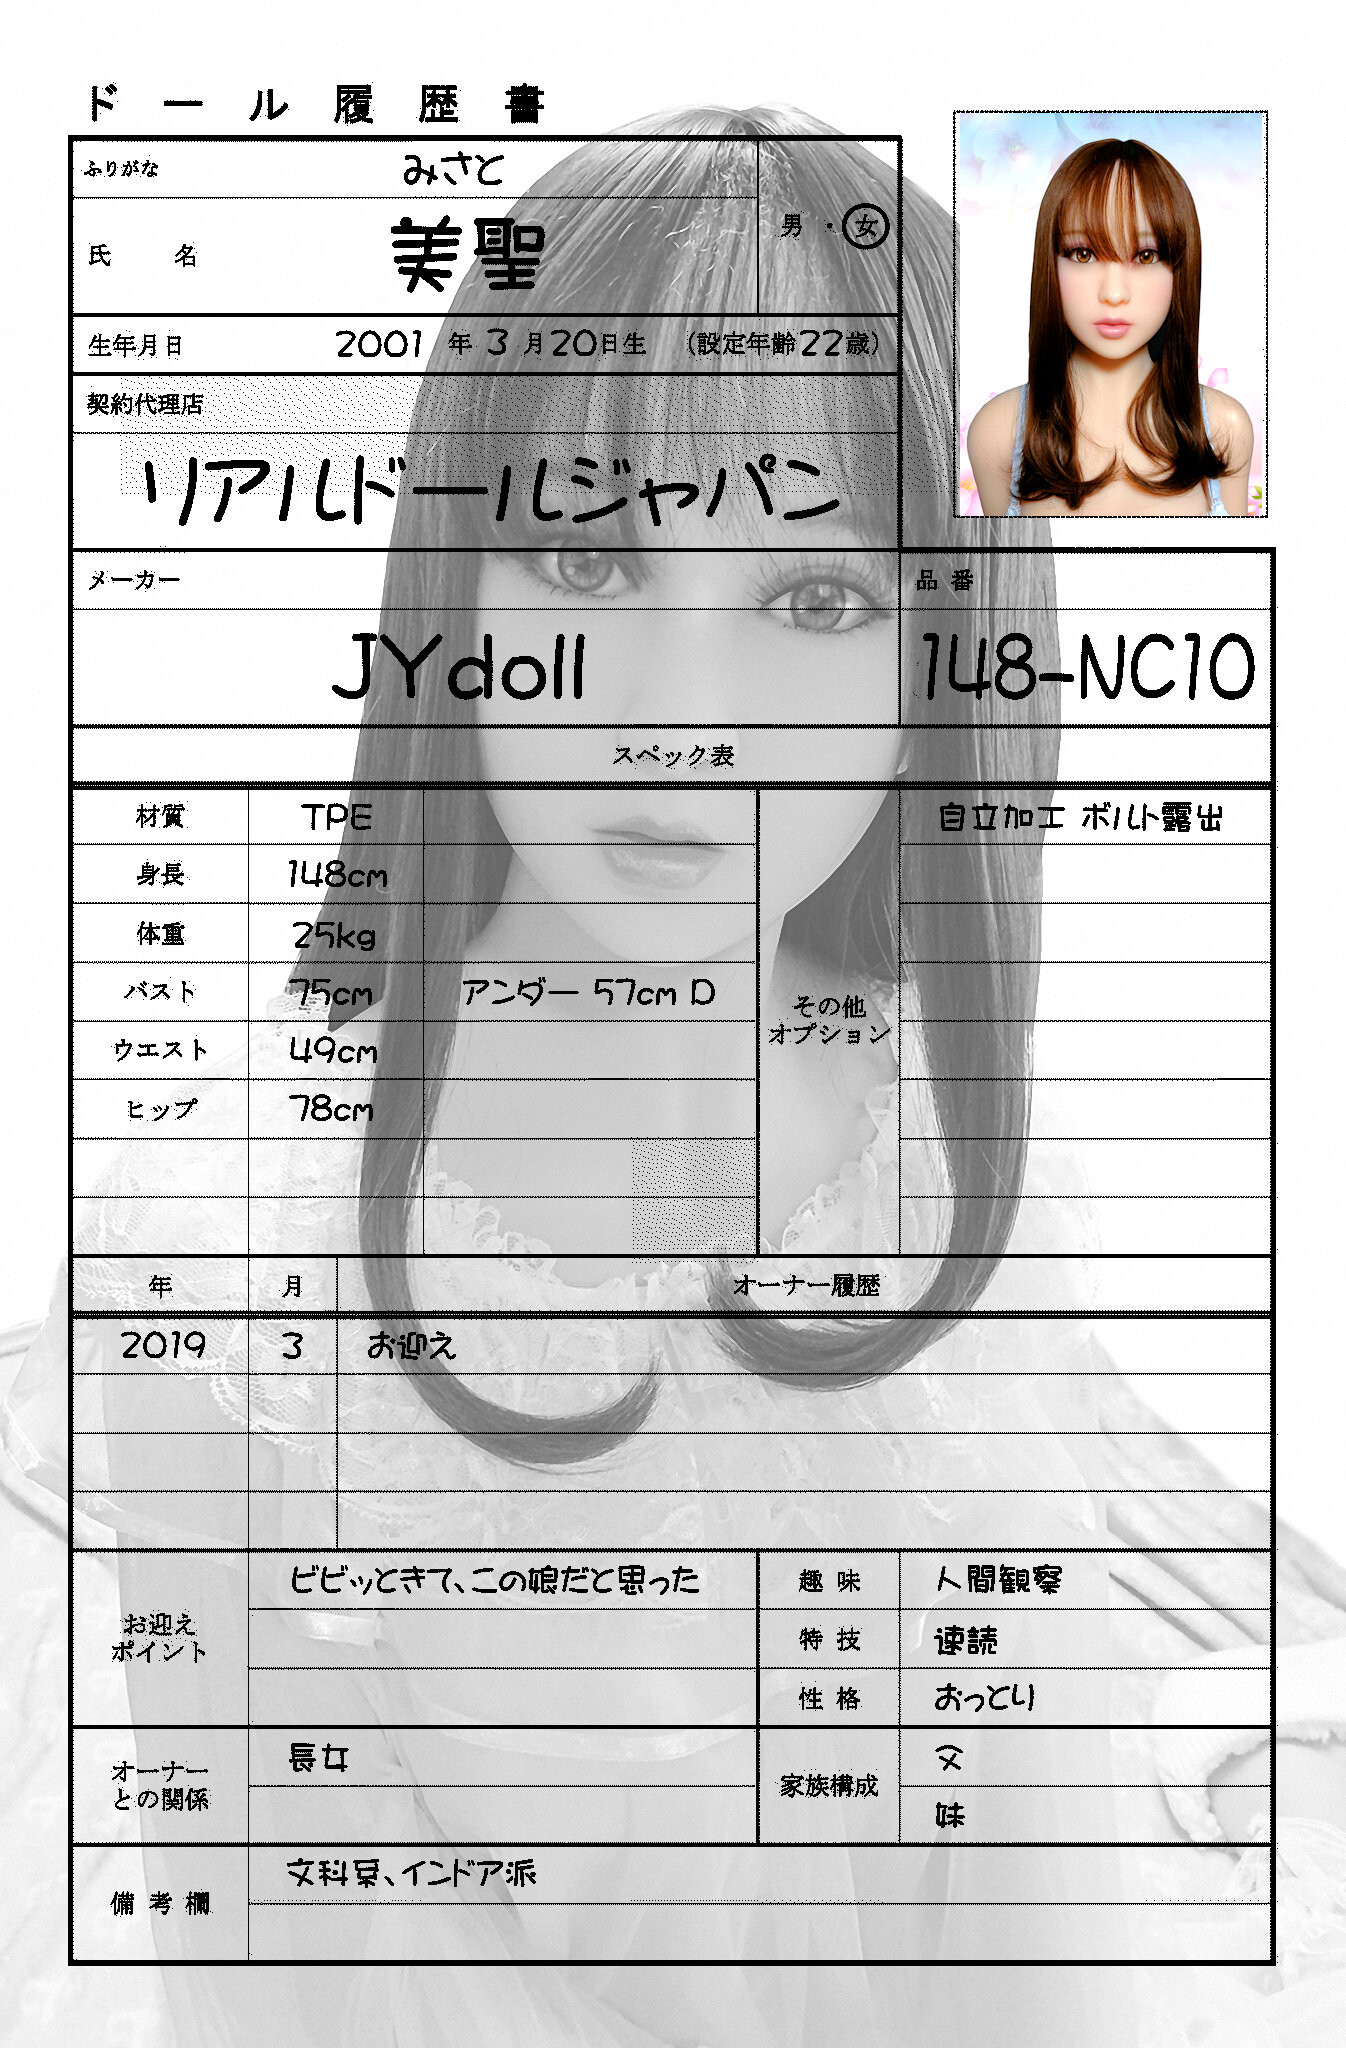 ドール履歴書
ふりがな みさと
氏名 美聖
男・女
生年月日 2001年3月20日生 (設定年齢22歳)
契約代理店
リアルドールジャパン
メーカー 品番
JYdoll 148-NC10
スペック表
材質 TPE
身長 148cm
体重 25kg
バスト 75cm アンダー 57cm D
ウエスト 49cm
ヒップ 78cm
その他
オプション
自立加工 ボルト露出
年 月 オーナー履歴
2019 3 お迎え
お迎え
ポイント
ビビッときて、この娘だと思った
趣味 人間観察
特技 速読
性格 おっとり
オーナー
との関係
長女
家族構成
父
妹
備考欄
文科系、インドア派